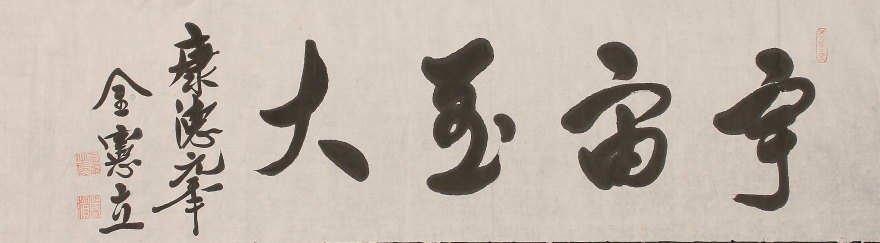 宇宙至大
康德年
金憲立